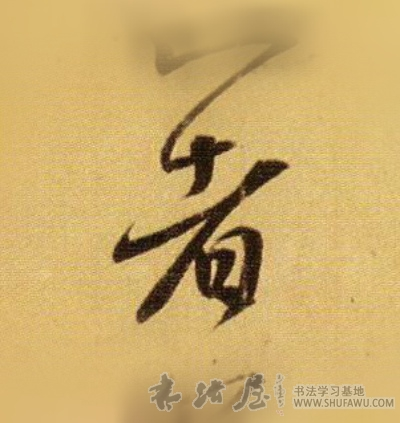 者
书法屋
书法学习基地
WWW.SHUFAWU.COM